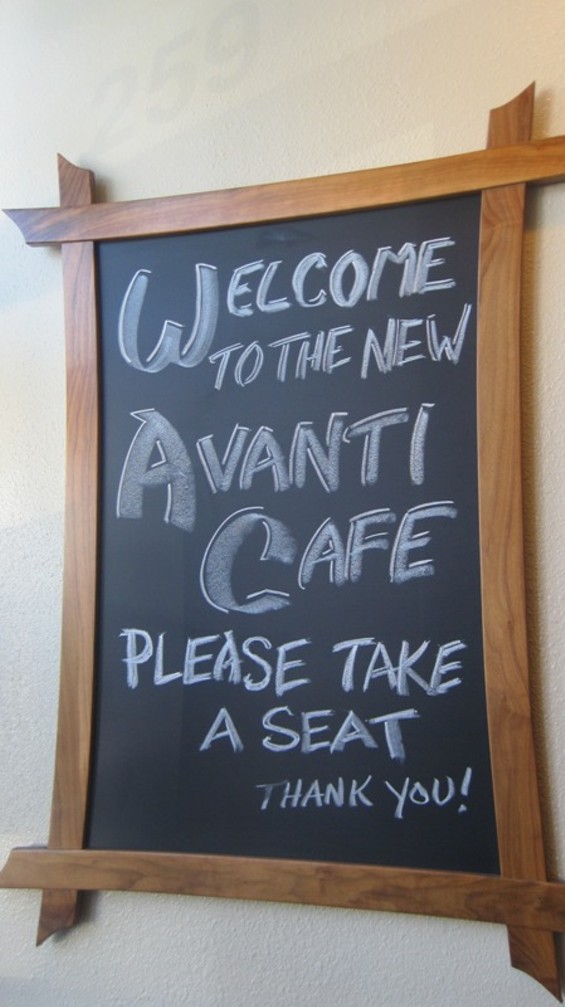 259
WELCOME
TO THE NEW
AVANTI
CAFE
PLEASE TAKE
A SEAT
THANK YOU!